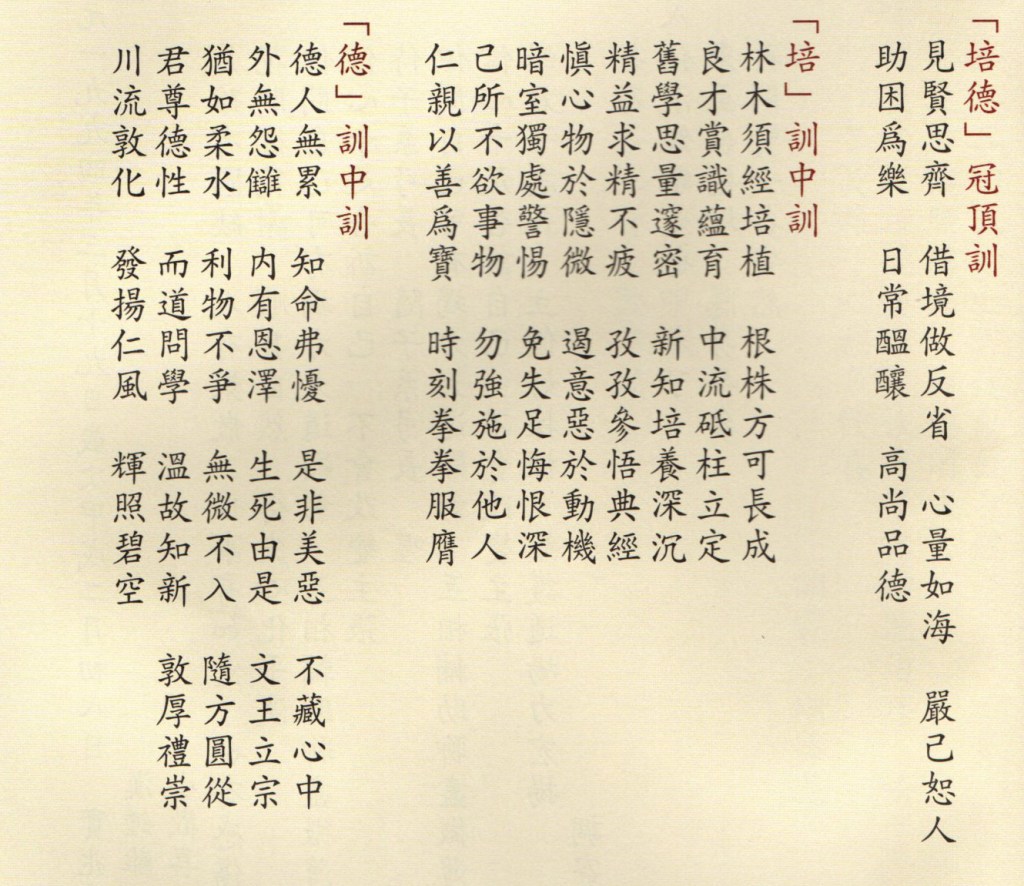 「培德」冠頂訓
見賢思齊 借境做反省 心量如海 嚴己恕人
助困爲樂 日常醞釀 高尚品德
「培」訓中訓
林木須經培植 根株方可長成
良才賞識蘊育 中流砥柱立定
舊學思量邃密 新知培養深沉
精益求精不疲 孜孜參悟典經
愼心物於隱微 遏意惡於動機
暗室獨處警惕 免失足悔恨深
己所不欲事物 勿強施於他人
仁親以善爲寶 時刻拳拳服膺
「德」訓中訓
德人無累 知命弗憂 是非美惡 不藏心中
外無怨讎 内有恩澤 生死由是 文王立宗
猶如柔水 利物不爭 無微不入 隨方圓從
君尊德性 而道問學 溫故知新 敦厚禮崇
川流敦化 發揚仁風 輝照碧空